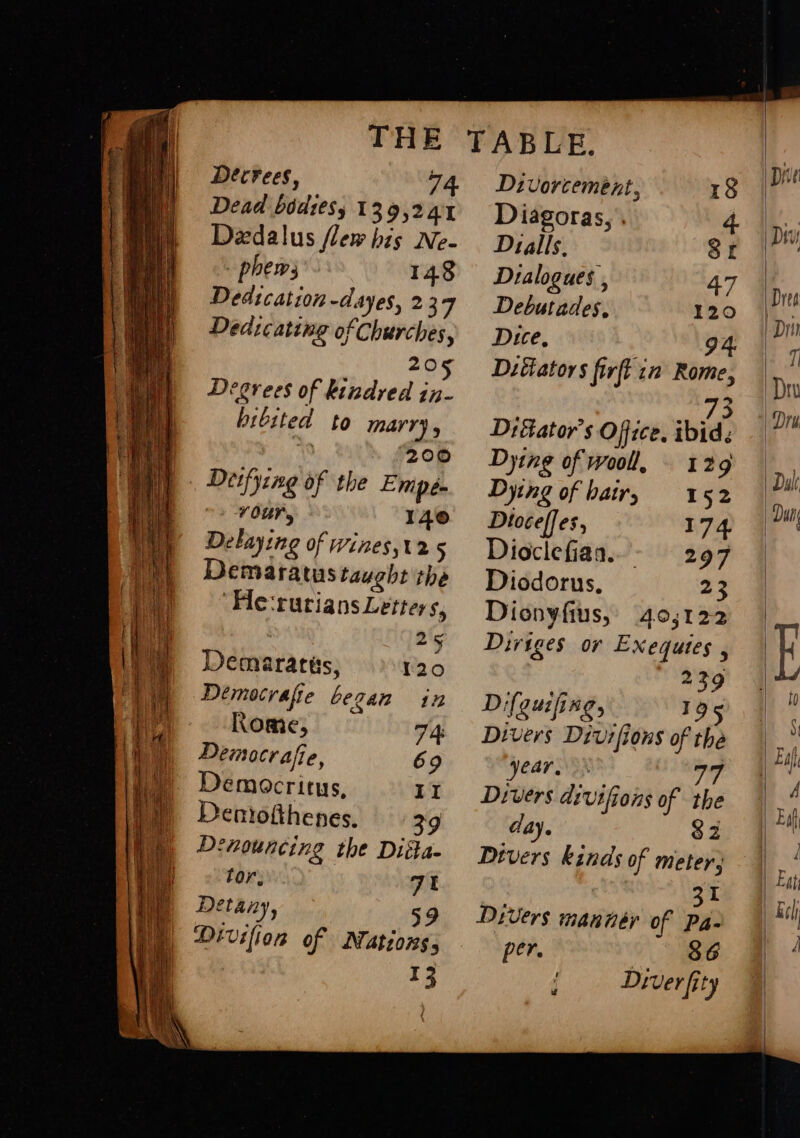 THE TABLE.
Decrees, 74
Dead bodies, 139,241
Dædalus ſlew his Ne-
phew, 148
Dedication-dayes, 237
Dedicating of Churches,
205
Degrees of kindred in-
hibited to marry,
200
Deifying of the Empe-
rour, 140
Delaying of wines,125
Demaratus taught the
Hetrurians Letters,
25
Demaratus, 120
Democraſie began in
Rome, 74
Democraſie, 69
Democritus, 11
Demoſthenes. 39
Denouncing the Dicta-
tor, 71
Detany, 59
Diviſion of Nations,
13
Divorcement, 18
Diagoras, 4
Dialls, 81
Dialogues, 47
Debutades, 120
Dice, 94
Dictators firſt in Rome,
73
Dictator's Office, ibid.
Dying of wooll, 129
Dying of hair, 152
Dioceſſes, 174
Diocleſian. 297
Diodorus, 23
Dionyſius, 40,122
Diriges or Exequies,
239
Diſguiſing, 195
Divers Diviſions of the
year. 77
Divers diviſions of the
day. 82
Divers kinds of meter,
31
Divers manner of Pa-
per. 86
Diverſity